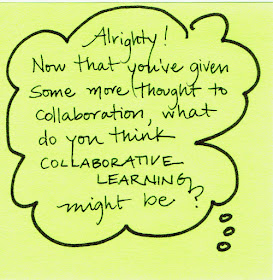 Alrighty!
Now that you've given
some more thought to
collaboration, what
do you think
COLLABORATIVE
LEARNING
might be?